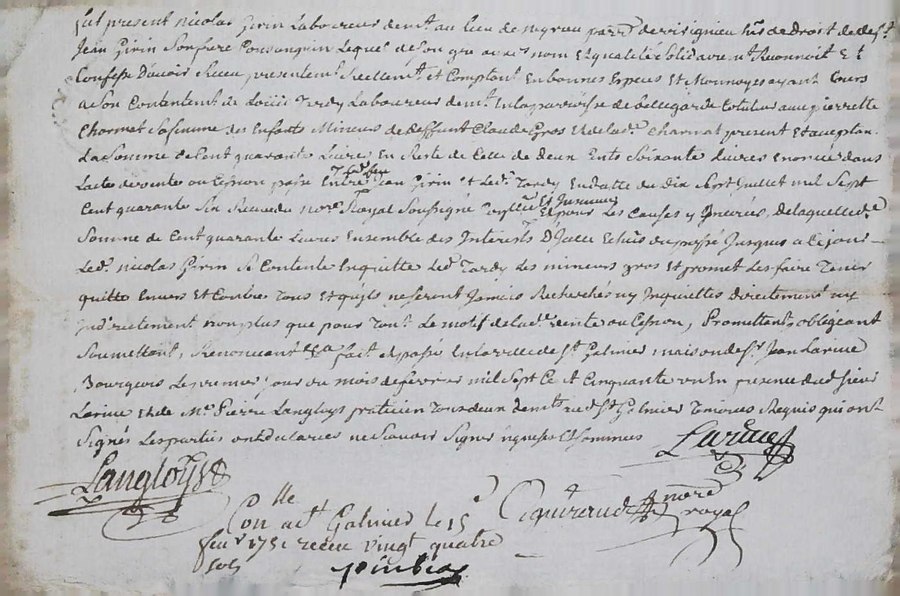 Fut present nicolas Girin Laboureur demt au Lieu de de virignieu hr de Droit de deft
Jean Girin Son frere Consanguin Lequel de Son gre aux nom Et qualité Solidaire nt Reconnoit Et
Confesse D'avoir Receu presentemt Reellemt et Comptant En bonnes Especes Et Monnoyes ayant Cours
a Son Contentemt de Tardy Laboureur demt En La parroisse de bellegarde Cotuteur avec pierrette
Charmat Sa femme des Enfants Mineurs de deffunt Claude gros Et de lade Charmat present Et acceptan.
La Somme de Cent quarante Livres En Reste de Celle de Deux Cents Soixante Livres Enoncée dans
Lacte de vente ou Cession passé Entre Jean Girin et Ledt Tardy En datte du dix Sept Juillet mil Sept
Cent quarante Six Receu du nore Royal Soussigné Et pour Les Causes y Enoncées, de laquelle de
Somme de Cent quarante Livres Ensemble des Interets D'icelle Echus du passé Jusques a Cejour
Ledt nicolas Girin Se Contente En quitte Ledt Tardy Les mineurs gros Et promet Les faire Tenir
quitte Envers Et Contre Tous Et quils ne Seront Jamais Recherchés ny Inquiettes directement ny
Indirectement non plus que pour Tout Le motif de lade vente ou Cession, Promettant, obligeant
Soumettant, Renonceant Fait Et passé En la ville de St Galmier maison de Sr Jean Larive
Bourgeois Le premier Jour du mois de fevrier mil Sept Cent Cinquante un En presence dud Sieur
Larive Et de Me Pierre Langloys praticien Tous deux demts aud St Galmier Temoins Requis qui ont
Signés Les parties ont declarées ne Scavoir Signer Enquises Et Sommées
Larive
Langloys
Conlle act Galmier le 15e
feur 1751 receu vingt quatre
sols
nore
royal